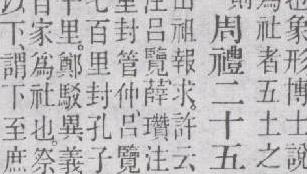 象形博士說
社者五土之
周禮二十五
祖報求。許云
注呂覽薛瓚注
里封管仲呂覽
七百里封孔子
十里。鄭駁異義
百家為社也。祭
以下、謂下至庶